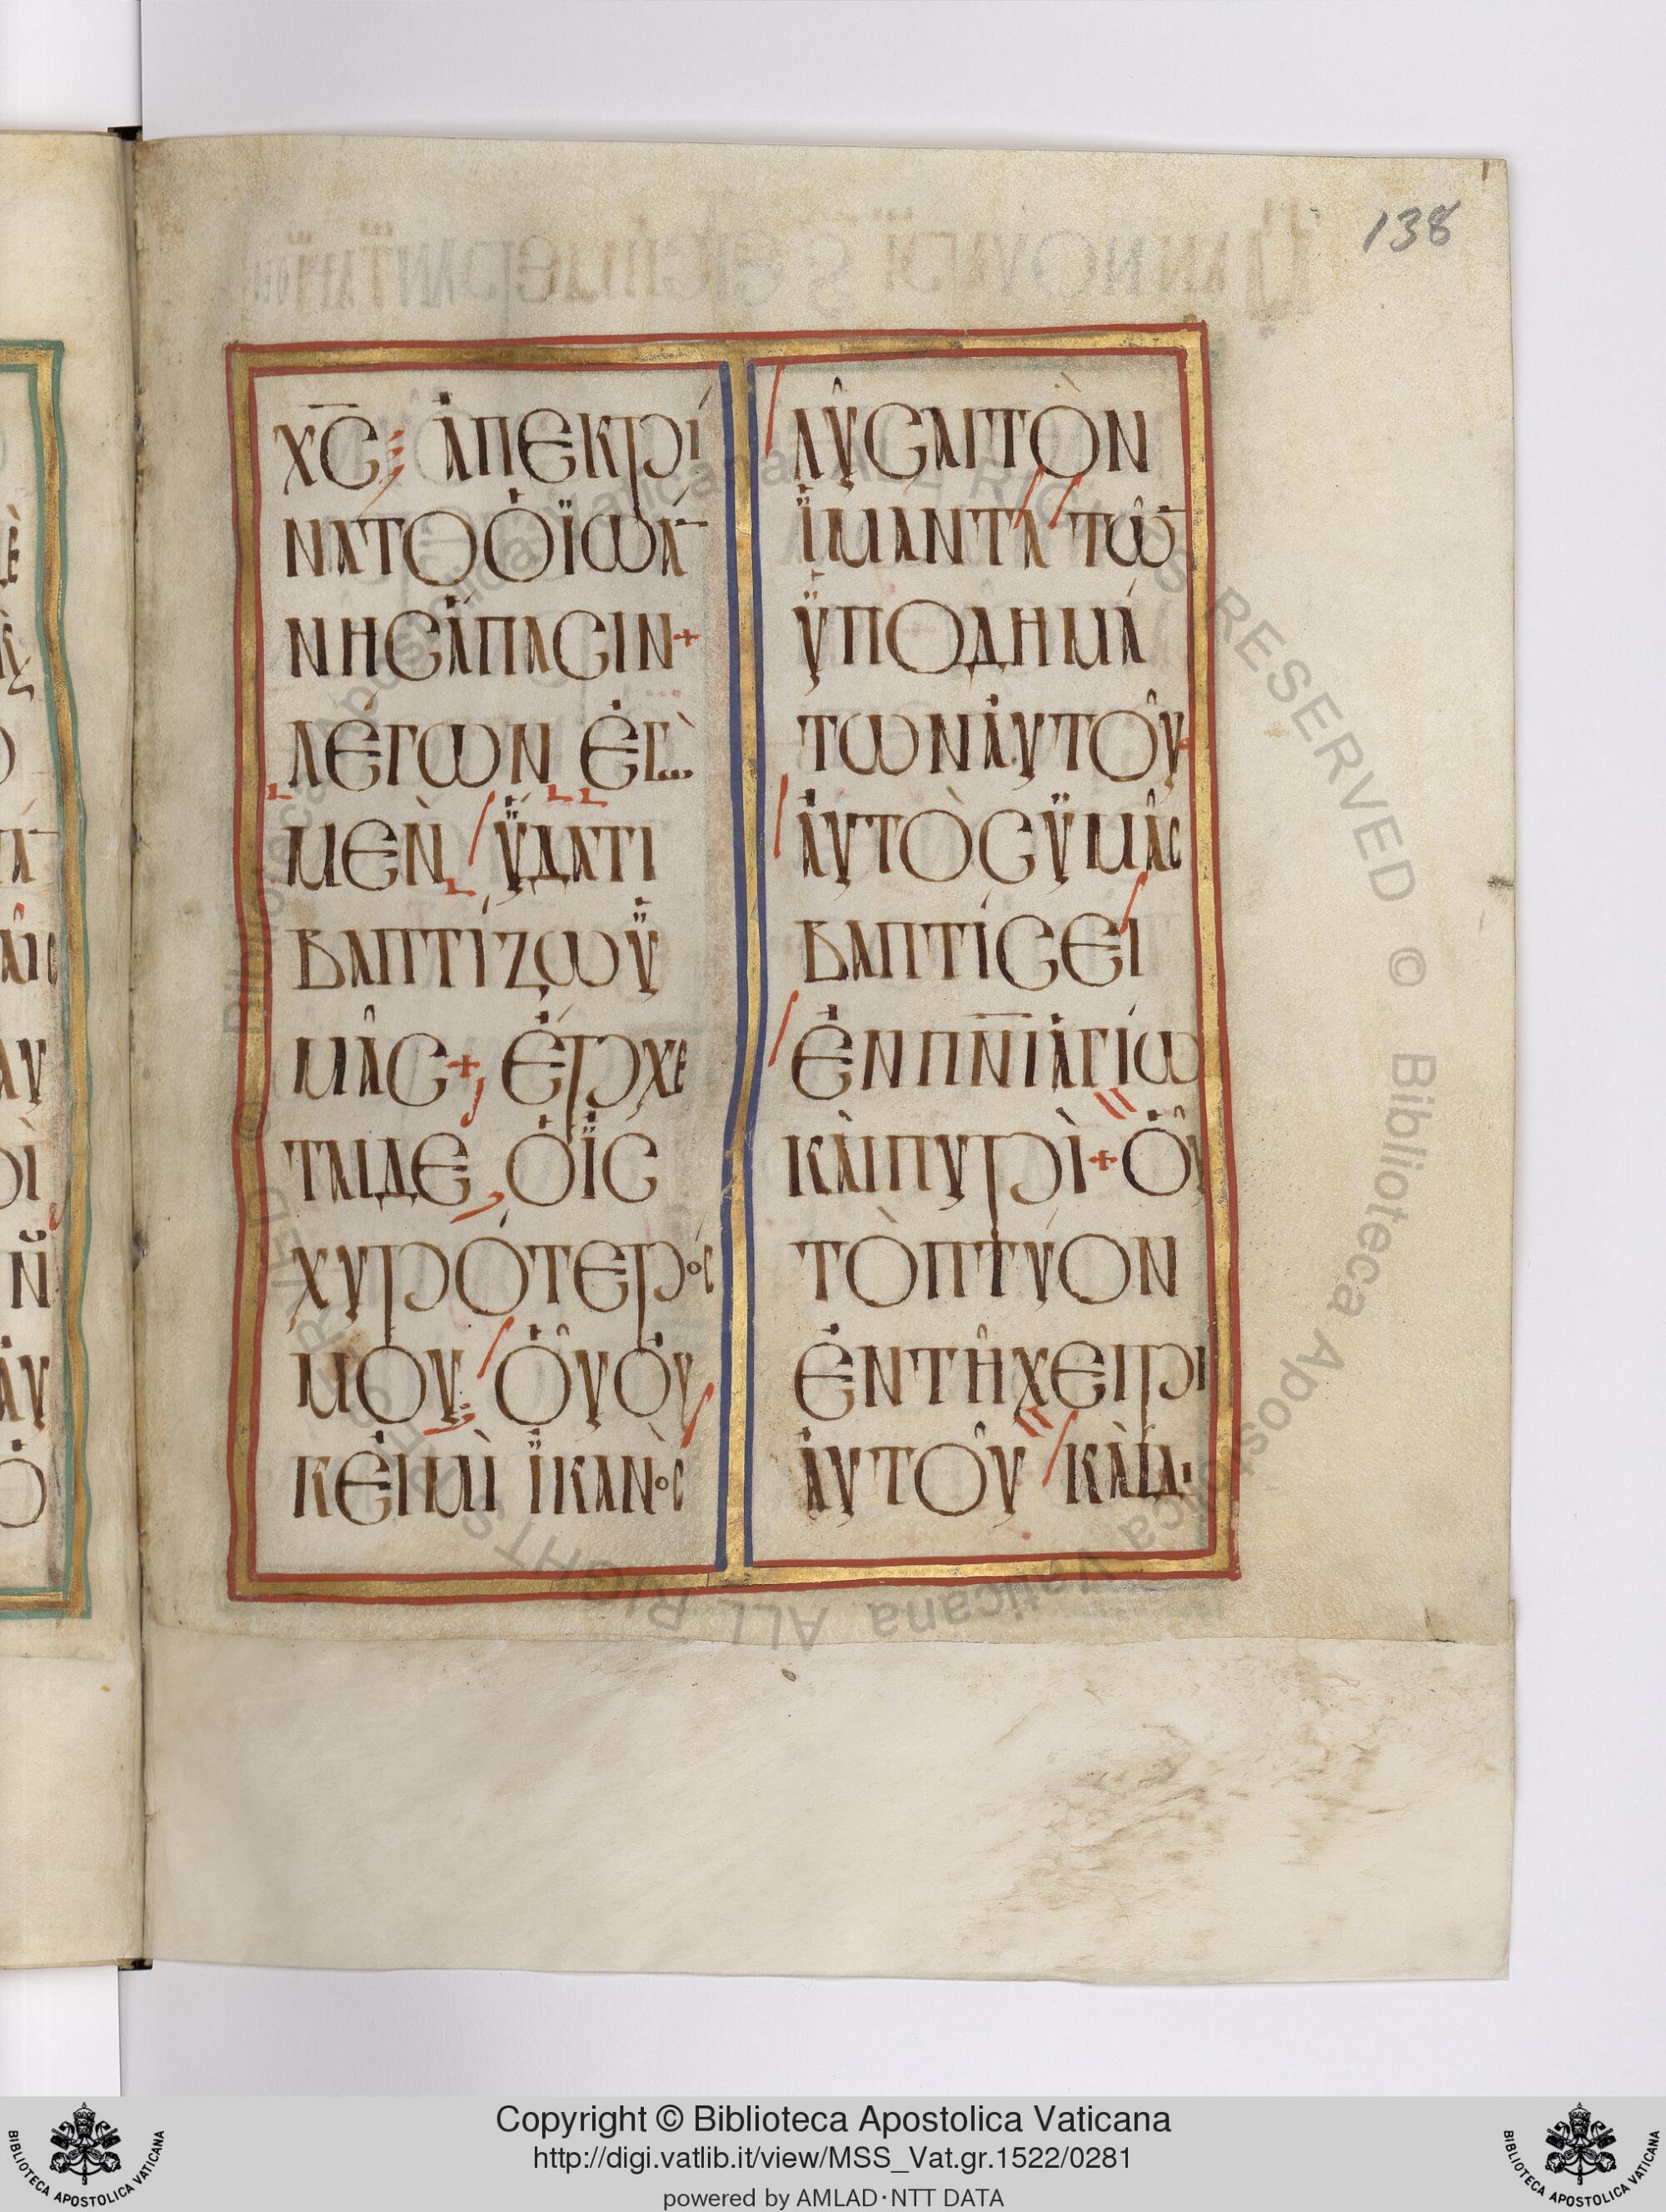 138
χ̅ς̅ ἀπεκρί
νατο ὁ ϊωά
νης ἁπασιν +
λέγων ἐγὼ
μὲν ὕδατι
βαπτίζω ὑ
μᾶς + ἔρχε
ται δε ὁ ἰσ
χυρότερός
μου οὗ οὐ
κ εἰμὶ ἱκανος
λῦσαι τὸν
ἱμάντα τῶ
ὑποδημά
των αὐτοῦ
αὐτὸς ὑμᾶς
βαπτίσει
ἐν π̅ν̅ι ἁγίω
καὶ πυρὶ + οὗ
τὸ πτύον
ἐν τῆ χειρι
αὐτοῦ καὶ δι
Copyright © Biblioteca Apostolica Vaticana
http://digi.vatlib.it/view/MSS_Vat.gr.1522/0281
powered by AMLAD·NTT DATA
BIBLIOTECA APOSTOLICA VATICANA
BIBLIOTECA APOSTOLICA VATICANA
Biblioteca Apostolica Vaticana ALL RIGHTS RESERVED ©